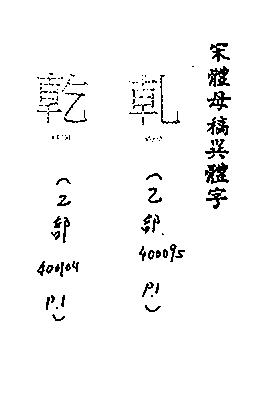 宋體母稿異體字
乹
(乙部.
400095
P.1)
乾
(乙部
400104
P.1)